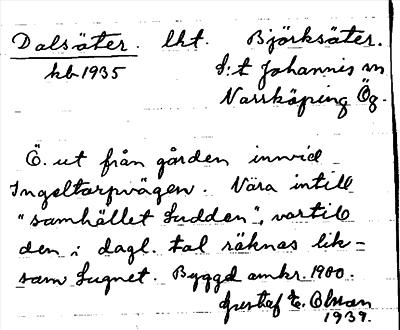 Dalsäter. lht. Björksäter.
kb 1935 S:t Johannis sn
Norrköping Ög.
Ö. ut från gården invid
Ingeltorpvägen. Nära intill
"samhället Sudden", vartill
den i dagl. tal räknas lik=
som Lugnet. Byggd omkr. 1900.
Gustaf E. Olsson
1939.